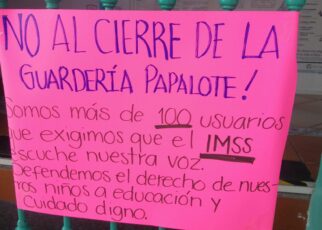 NO AL CIERRE DE LA
GUARDERÍA PAPALOTE!
Somos más de 100 usuarios
que exigimos que el IMSS
escuche nuestra voz.
Defendemos el derecho de nues-
tros niños a educación y
cuidado digno.